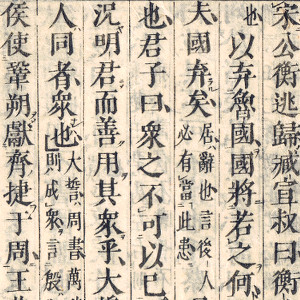 宋公衡逃歸臧宣叔曰衡
也以弃魯國國將若之何
夫國弃矣居辭也言後人
必有當此患
也君子曰衆之不可以已
況明君而善用其衆乎大
人同者衆也大誓周書萬
則成衆言殷
侯使鞏朔獻齊捷于周王